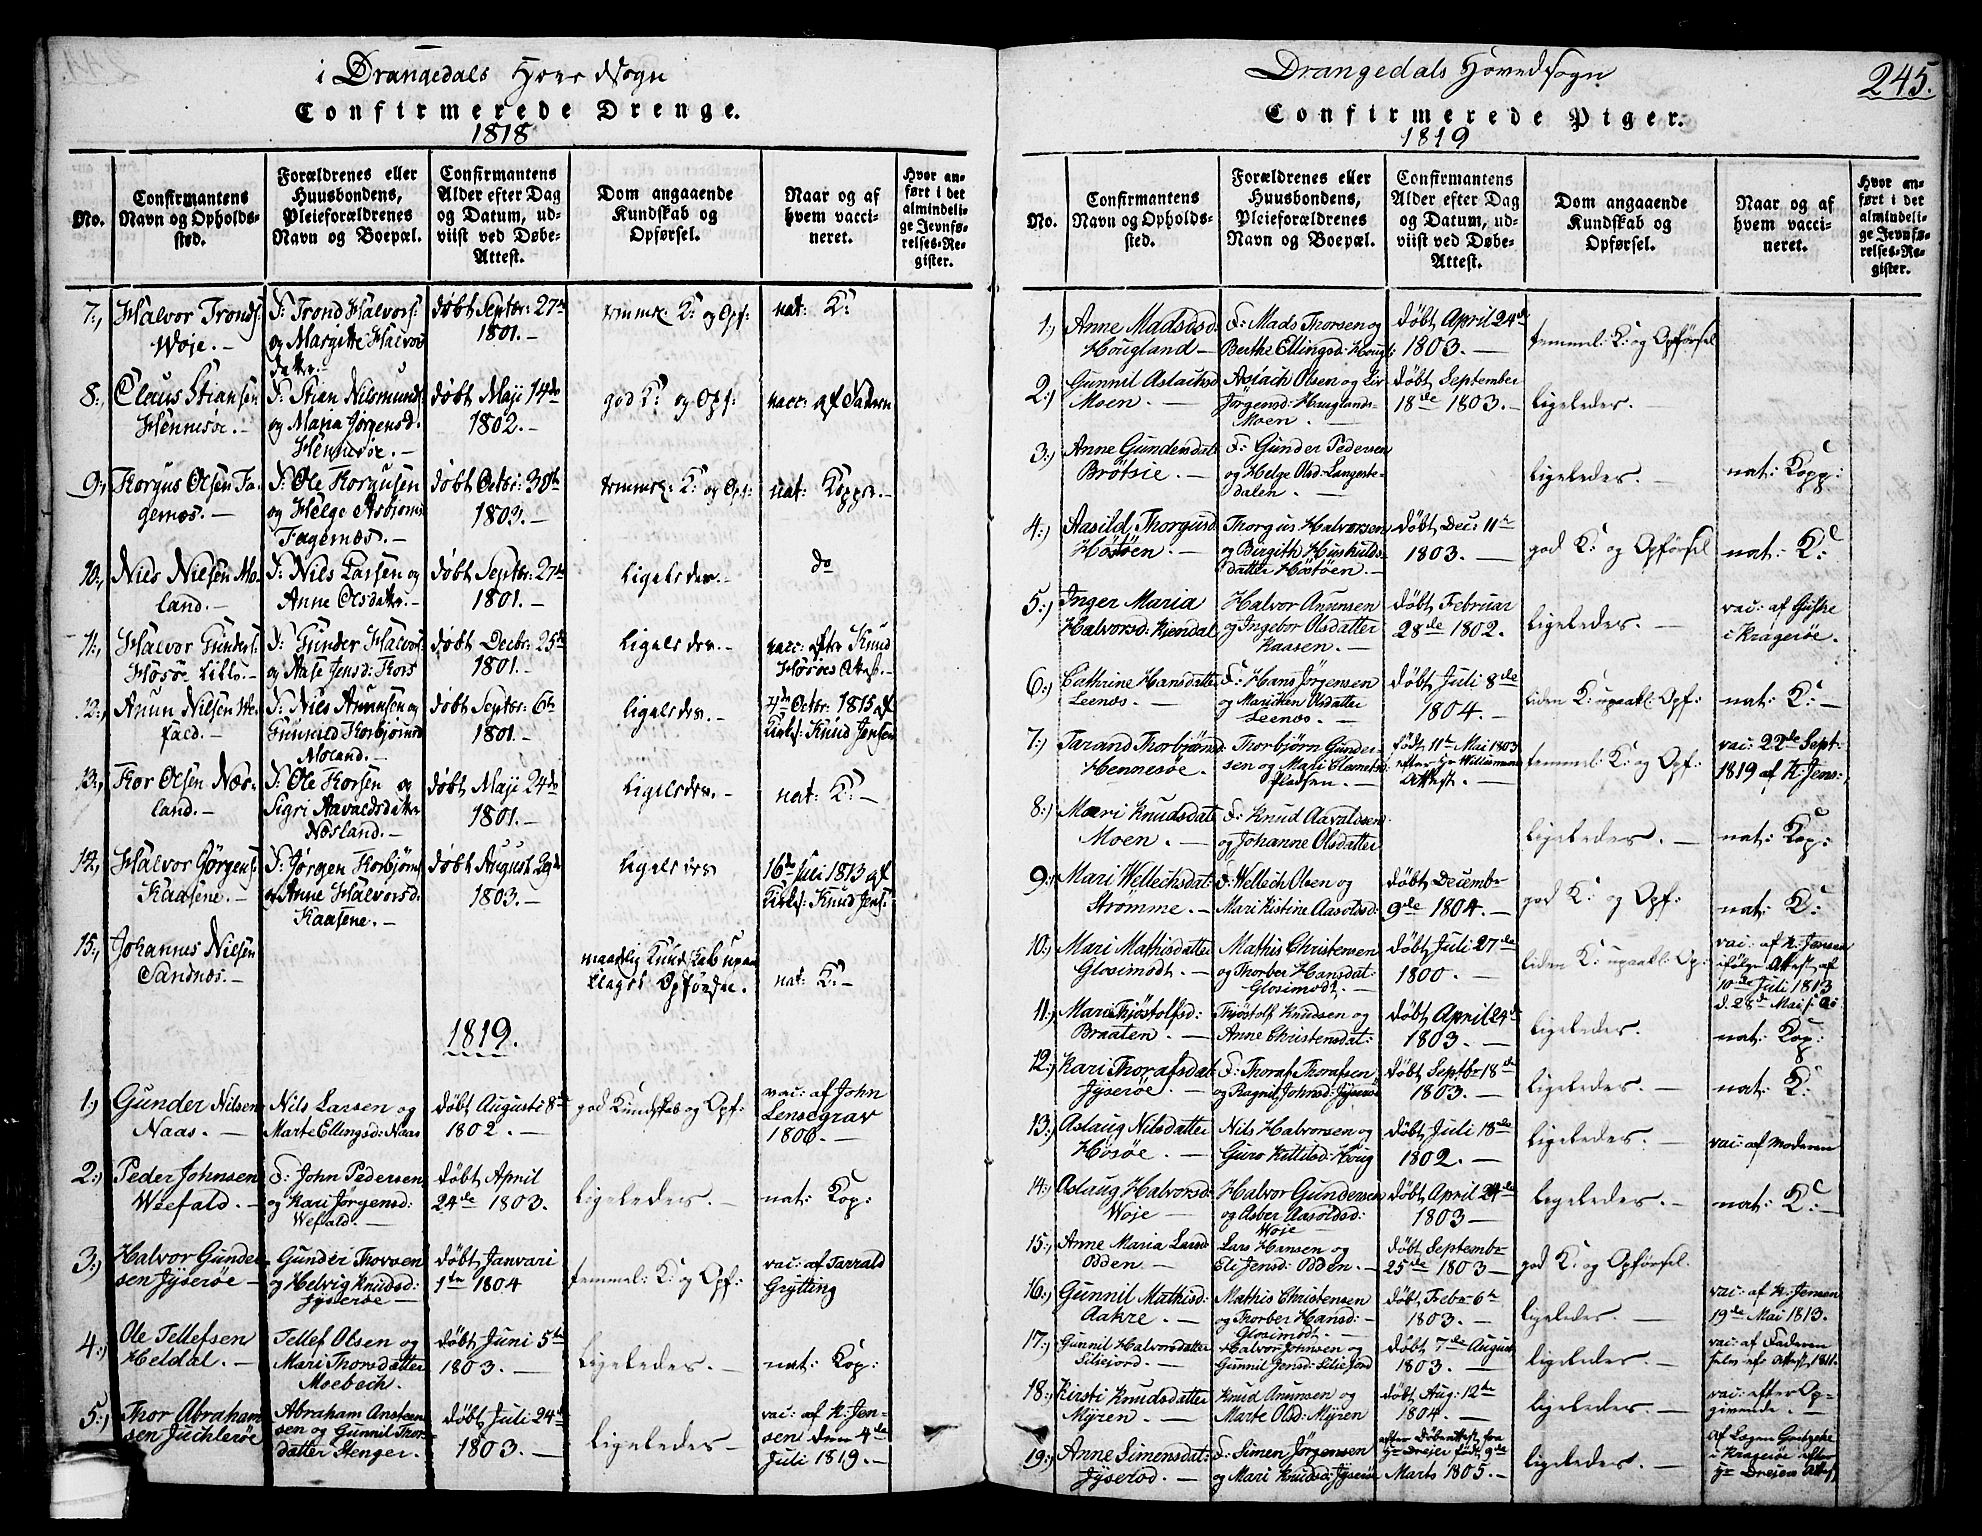 i Drangedals Hovedsogn
Confirmerede Drenge.
1818
No.
Confirmantens
Navn og Opholds-
sted.
Forældrenes eller
Huusbondens,
Pleieforældrenes
Navn og Boepæl.
Confirmantens
Alder efter Dag
og Datum, ud-
viist ved Døbe-
Attest.
Dom angaaende
Kundskab og
Opførsel.
Naar og af
hvem vacci-
neret.
Hvor an-
ført i det
almindeli-
ge Jevnfø-
relses-Re-
gister.
7:, Halvor Tronds:
Woje. —
F: Trond Halvors:
og Margitte Halvors
datter. —
døbt Septbr: 27de
1801. —
temmel: K: og Opf:
nat: K:
8:, Claus Stiansen
Hennesøe. —
F: Stian Nilsmund:
og Maria Jørgensd:
Hennesøe. —
døbt Maji 14de
1802. —
god K: og Opf:
vacc: af Faderen
9:, Torgus Olsen Fa-
gernæs. —
F: Ole Torgusen
og Helge Asbjørns
Fagernæs. —
døbt Octbr: 30te
1803. —
temmel: K: og Opf:
nat: Kopper. —
10:, Niels Nielsen Mo-
land. —
F: Nils Larsen og
Anne Olsdatter. —
døbt Septbr: 27de
1801. —
ligeledes. —
do
11:, Halvor Gunders:
Hosø Lille. —
F: Gunder Halvors:
og Aase Jensd: Fors
døbt Decbr: 25de
1801. —
ligeledes. —
vacc: efter Knud
Hosøes Attest. —
12:, Anun Nielsen We-
fald. —
F: Niels Anunsen og
Gunnild Torbjørnsd
Moland. —
døbt Septbr: 6te
1801. —
ligeledes. —
4de Octbr: 1815 af
Kirks: Knud Jensen
13:, Tor Olsen Næs-
land. —
F: Ole Torsen og
Sigri Aavaldsdatter
Næsland. —
døbt Maji 24de
1801. —
ligeledes. —
nat: K: —
14:, Halvor Jørgens:
Kaasene. —
F: Jørgen Torbjørns
og Anne Halvorsd:
Kaasene. —
døbt August 29de
1803. —
ligeledes
16de Juli 1813 af
Kirks: Knud Jens:
15:, Johannes Nielsen
Sandnæs. —
maadelig Kundskab upaa
klaget Opførsel.
nat: K: —
1819.
1:, Gunder Nilsen
Naas. —
Nils Larsen og
Marte Ellingsd: Naas
døbt Augusti 8de
1802. —
god Kundskab og Opf:
vac: af John
Lensegrav
1806. —
2:, Peder Johnsen
Weefald. —
F: John Pedersen
og Kari Jørgensd:
Wefald. —
døbt April
24de 1803.
ligeledes. —
nat: Kop:
3:, Halvor Gunder
sen Jyserøe —
Gunder Thovsen
og Helvig Knudsd:
Jyserøe —
døbt Janvari
1te 1804
temmel: K: og Opf:
vac: af Tarrald
Grytting
4:, Ole Tellefsen
Heldal. —
Tellef Olsen og
Mari Thorsdatter
Moebech.
døbt Juni 5te
1803. —
ligeledes. —
nat: Kop:
5:, Thor Abraham
sen Juchlerøe
Abraham Ansteen
sen og Gunnil Thor
datter Stenger.
døbt Juli 24de
1803. —
ligeledes —
vac: af K: Jen-
sen den 4de
Juli 1819. —
Drangedals Hovedsogn
245.
Confirmerede Piger.
1819
No.
Confirmantens
Navn og Opholds-
sted.
Forældrenes eller
Huusbondens,
Pleieforældrenes
Navn og Boepæl.
Confirmantens
Alder efter Dag
og Datum, ud-
viist ved Døbe-
Attest.
Dom angaaende
Kundskab og
Opførsel.
Naar og af
hvem vacci-
neret.
Hvor an-
ført i det
almindeli-
ge Jevnfø-
relses-Re-
gister.
1:, Anne Madsdsd.
Hougland —
F: Mads Thorsen og
Berthe Ellingsd: Hougl:
døbt April 24de
1803. —
temmel: K: og Opførsel
2:, Gunnil Aslachsd
Moen. —
Aslach Olsen og Liv
Jørgensd: Houglands-
Moen. —
døbt September
18de 1803. —
ligeledes. —
3:, Anne Gundersdatt
Brøtsie. —
F: Gunder Pedersen
og Helge Olsd: Langeste
dalen. —
ligeledes. —
nat: Kopp:
4:, Aasild Thorgusd.
Høstøen. —
Thorgus Halvorsen
og Birgith Huskulds-
datter Høstøen. —
døbt Dec: 11te
1803. —
god K: og Opførsel
nat: K:
5:, Inger Maria
Halvorsd: Kiendal
Halvor Anunsen
og Ingebor Olsdatter
Kaasen. —
døbt Februar
28de 1802. —
ligeledes. —
vac: af Giehe
i Kragerøe. —
6:, Cathrine Hansdatter
Leenæs. —
F: Hans Jørgensen
og Mariken Olsdatter
Leenæs. —
døbt Juli 8de
1804. —
liden K: upaakl: Opf:
nat: K: —
7:, Tarand Thorbjørns
Hennesøe. —
Thorbjørn Gunder-
sen og Mari Clemetsd:
Pladsen. —
født 11te Mai 1803
efter Hr Willermans
Attest. —
temmel: K: og Opf:
vac: 22de Sept:
1819 af K: Jens:
8:, Mari Knudsdat
Moen. —
F: Knud Aavaldsen
og Johanne Olsdatter
ligeledes. —
nat: Kop:
9:, Mari Wellechsdat:
Strømme. —
F: Wellech Olsen og
Mari Kistine Aasoldsd:
døbt Decembr
9de 1804. —
god K: og Opf:
nat: K:
10:, Mari Mathisdatter
Glosimodt. —
Mathis Christensen
og Thorber Hansdat:
Glosimodt. —
døbt Juli 27de
1800. —
liden K: upaakl: Op:
vac: af K: Jensen
ifølge Attest af
10de Juli 1813
d. 28de Mai s: A:
11:, Mari Thjøstolfsd:
Braaten. —
Thjøstolf Knudsen og
Anne Christensdat:
døbt April 24de
1803. —
ligeledes. —
nat: Kop:
12:, Kari Thorafsdat
Jyserøe. —
F: Thoraf Thorafsen
og Ragnil Johnsd: Jyserøe
døbt Septbr 18de
1803. —
ligeledes. —
nat: K:
13:, Aslaug Nilsdatter
Høsøe. —
Nils Halvorsen og
Guro Kittilsd: Houg
døbt Juli 18de
1802. —
ligeledes. —
vac: af Moderen
14:, Aslaug Halvorsd:
Woje —
Halvor Gundersen
og Asber Aasoldsd:
Woje
døbt April 24de
1803 —
ligeledes. —
nat: K: —
15:, Anne Maria Larsd
Odden —
Lars Hansen og
Eli Jensd: Odden. —
døbt Septembr
25de 1803 —
god K: og Opførsel.
16:, Gunnil Mathisd:
Aakre. —
Mathis Christensen
og Thorber Hansd:
Glosimodt. —
døbt Febr 6te
1803. —
ligeledes. —
vac: af K: Jensen
19de Mai 1813.
17:, Gunnil Halvorsdatter
Siliejord. —
Halvor Johnsen og
Gunnil Jensd: Silie Jord
døbt 7de August
1803. —
ligeledes. —
vac: af Faderen
selv efr Attest 1811.
18:, Kirsti Knudsdatter
Myren. —
Knud Anunsen og
Marte Olsd: Myren
døbt Aug: 12te
1804. —
ligeledes. —
vac: efter Op-
givende. —
19:, Anne Simensdat:
Jyserød. —
F: Simen Jørgensen
og Mari Knudsd: Jyserøe
efter Døbeattest fra
Hr Drejer født 9de
Marts 1805. —
ligeledes. —
af Lagen Godtzche
i Kragerøe efter
Hr Drejers Attest